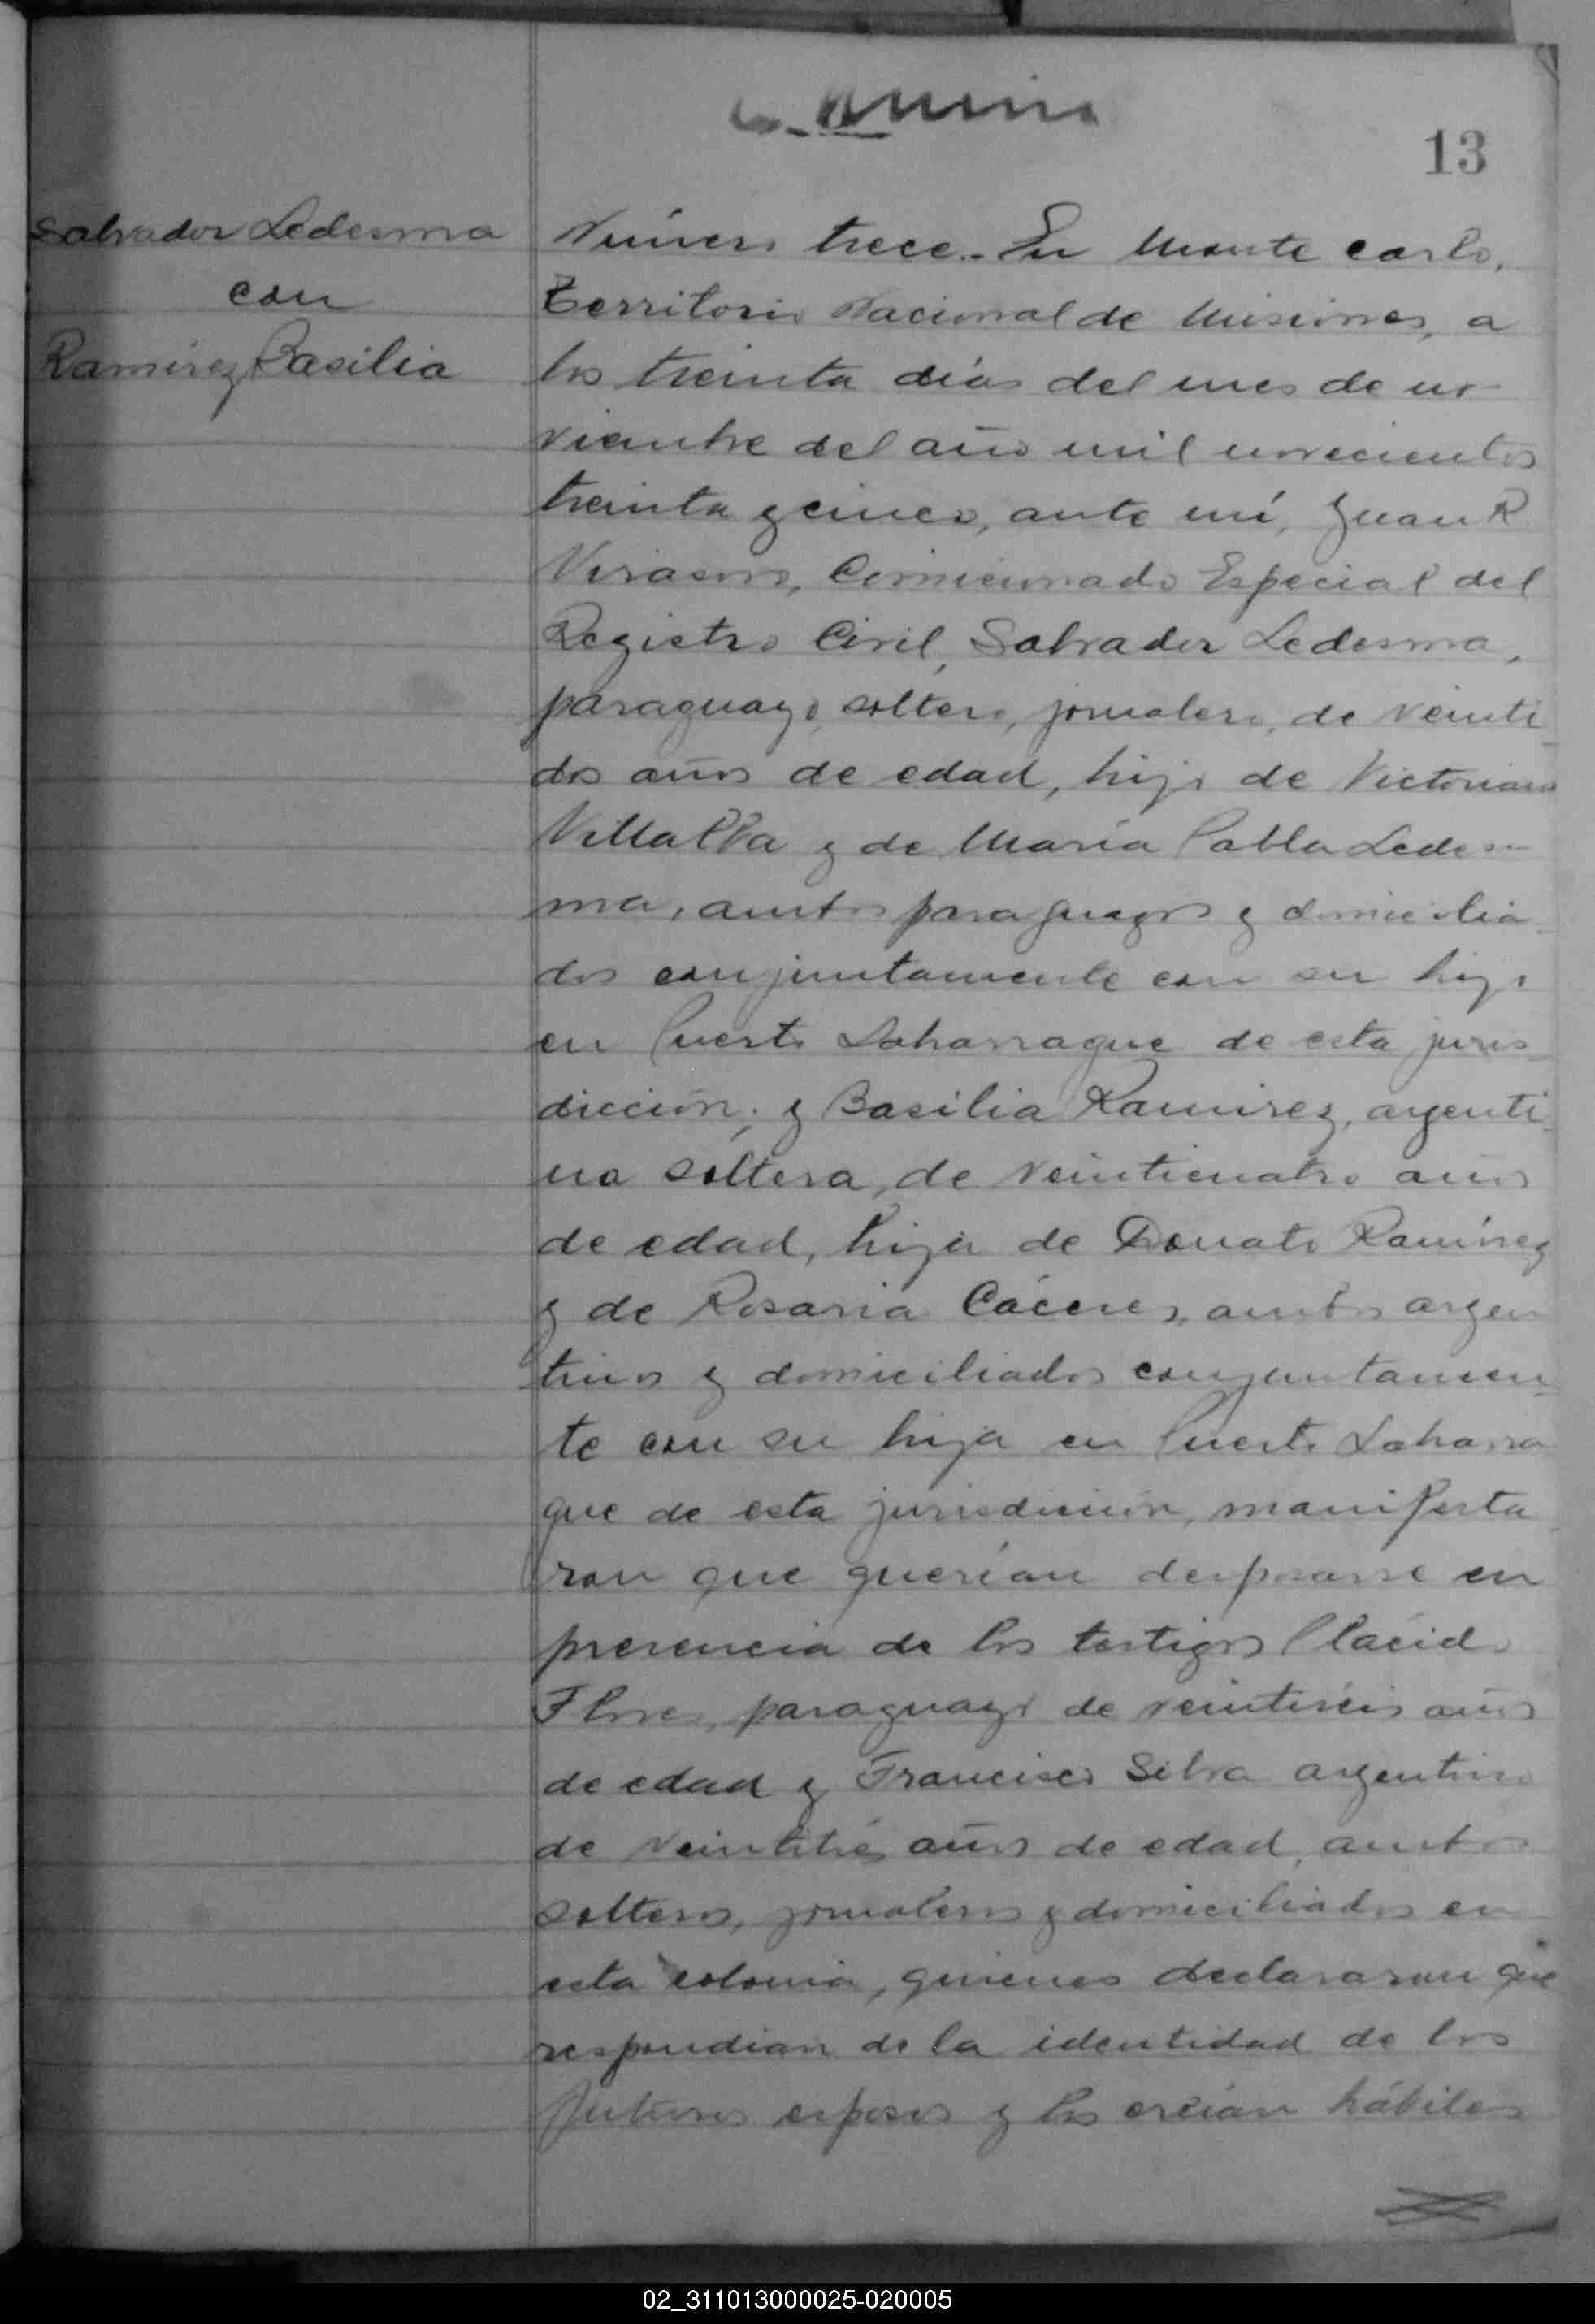 13
Salvador Ledesma
con
Ramírez Basilia
Número trece.- En Monte Carlo,
Territorio Nacional de Misiones, a
los treinta días del mes de no-
viembre del año mil novecientos
treinta y cinco, ante mí, Juan R.
Virasoro, Comicionado Especial del
Registro Civil, Salvador Ledesma,
paraguayo, soltero, jornalero, de veinti
dos años de edad, hijo de Victoriano
Villalba y de María Pabla Ledes-
ma, ambos paraguayos y domicilia
dos conjuntamente con su hijo
en Puerto Laharrague de esta juris
dicción; y Basilia Ramirez, argenti
na soltera, de veinticuatro años
de edad, hija de Donato Ramírez
y de Rosaria Cáceres, ambos argen
tinos y domiciliados conjuntamen
te con su hija en Puerto Laharra
que de esta jurisdicción, manifesta
ron que querían desposarse en
presencia de los testigos Plácido
Flores, paraguayo de veintiséis años
de edad y Francisco Silva argentino
de veintitrés años de edad, ambos
solteros, jornaleros y domiciliados en
esta colonia, quienes declararon que
respondian de la identidad de los
futuros esposos y los creían hábiles
02_311013000025-020005